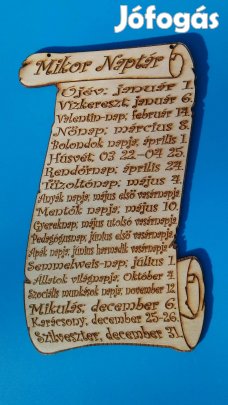 Jófogás
Mikor Naptár
Újév: január 1.
Vízkereszt; január 6.
Valentin-nap; február 14.
Nőnap; március 8.
Bolondok napja, április 1.
Húsvét, 03 22-04 25.
Rendőrnap, április 24.
Tűzoltónap; május 4.
Anyák napja; május első vasárnapja
Mentők napja; május 10.
Gyereknap; május utolsó vasárnapja
Pedagógusnap; június első vasárnapja
Apák napja; június harmadik vasárnapja
Semmelweis-nap; július 1.
Állatok világnapja, Október 4.
Szociális munkások napja; november 12.
Mikulás; december 6.
Karácsony, december 25-26.
Szilveszter; december 31.